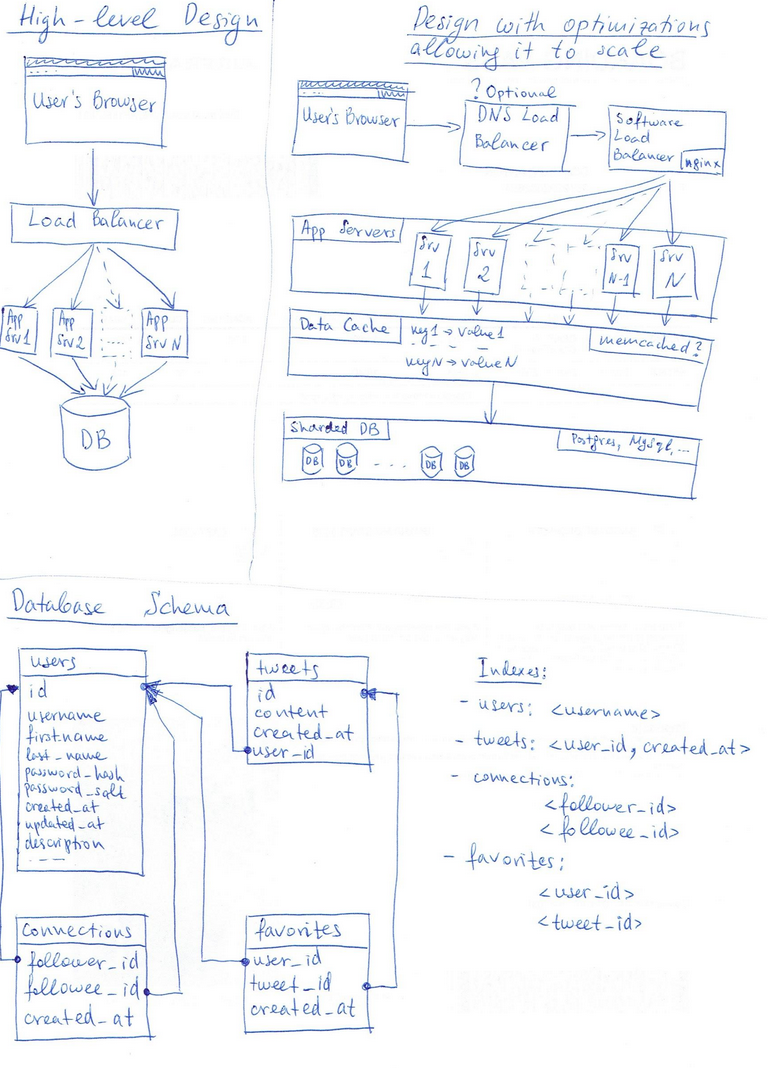 High-level Design
User's Browser
Load Balancer
App
Srv 1
App
Srv 2
App
Srv N
DB
Design with optimizations
allowing it to scale
User's Browser
? Optional
DNS Load
Balancer
Software
Load
Balancer
nginx
App Servers
Srv
1
Srv
2
Srv
N-1
Srv
N
Data Cache
key1 → value1
keyN → valueN
memcached?
Sharded DB
Postgres, MySql, ...
DB
DB
...
DB
DB
Database Schema
users
id
username
first_name
last_name
password_hash
password_salt
created_at
updated_at
description
tweets
id
content
created_at
user_id
connections
follower_id
followee_id
created_at
favorites
user_id
tweet_id
created_at
Indexes:
- users: <username>
- tweets: <user_id, created_at>
- connections:
<follower_id>
<followee_id>
- favorites:
<user_id>
<tweet_id>